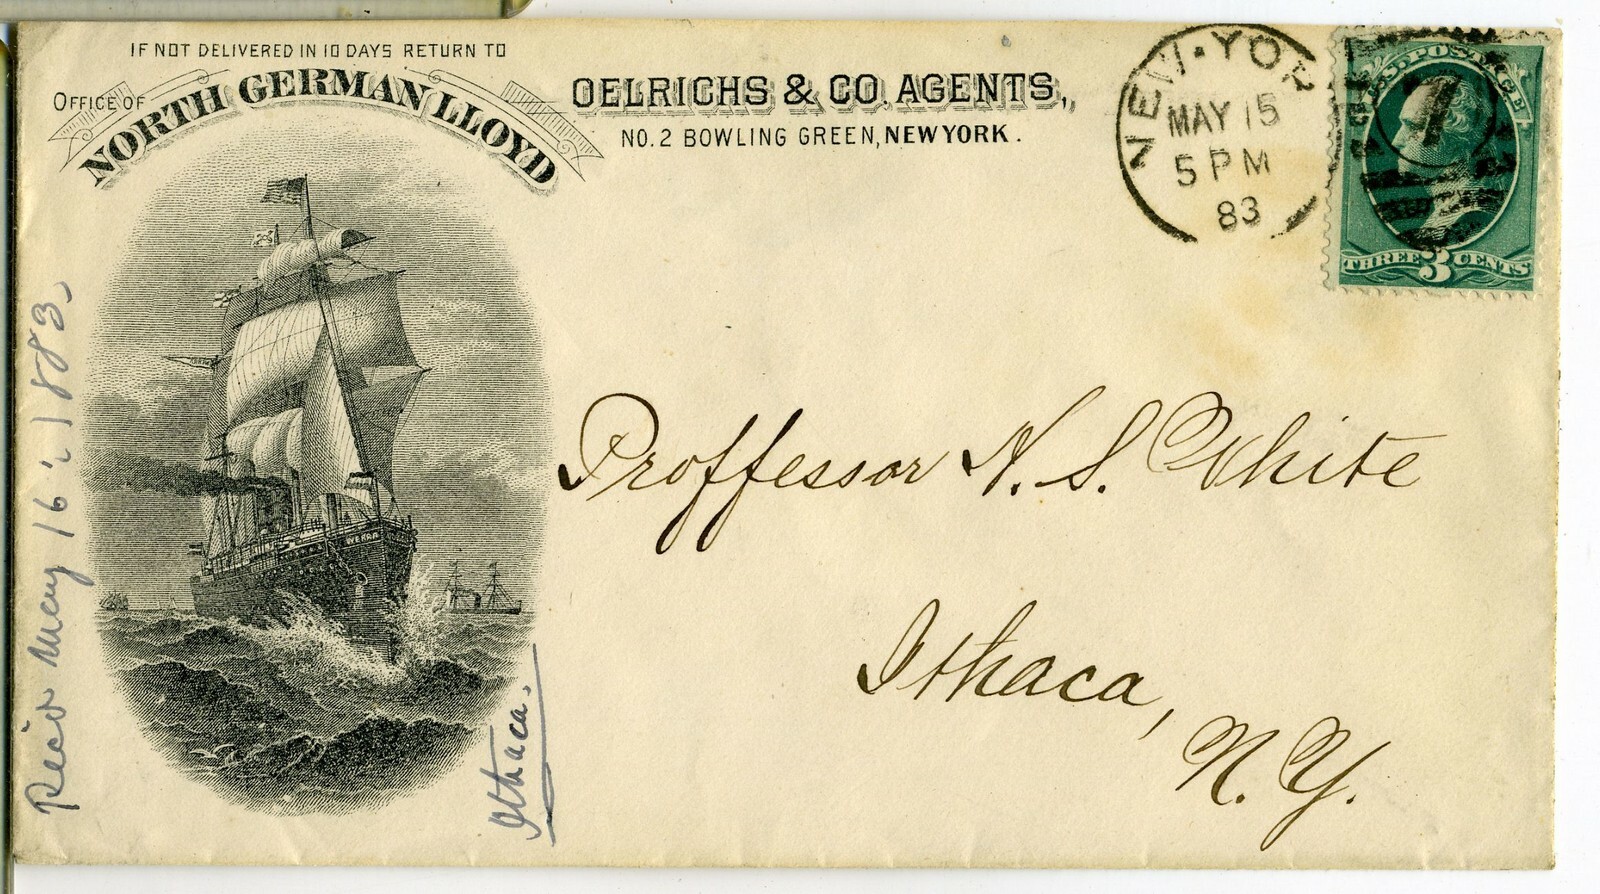 IF NOT DELIVERED IN 10 DAYS RETURN TO
OFFICE OF
NORTH GERMAN LLOYD
OELRICHS & CO. AGENTS,
NO. 2 BOWLING GREEN, NEW YORK.
NEW·YOR
MAY 15
5 PM
83
1
U.S. POSTAGE
THREE 3 CENTS
WERRA
Proffessor H. S. White
Ithaca,
N. Y.
Rec'd May 16: 1883.
Ithaca.